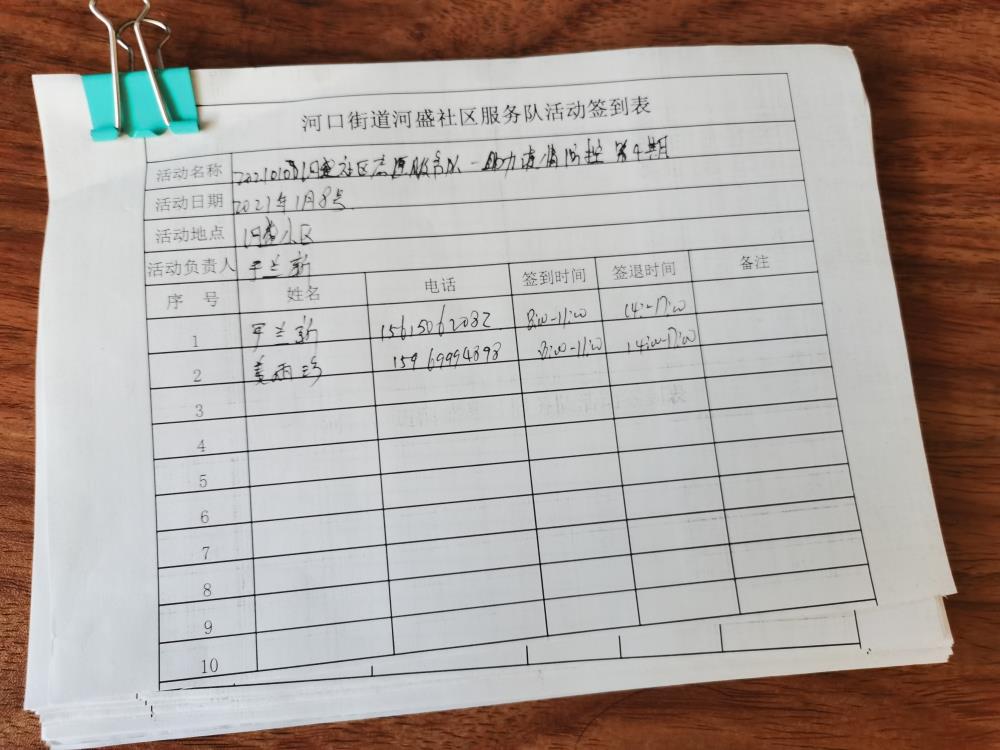 河口街道河盛社区服务队活动签到表
活动名称 20210108河盛社区志愿服务队-助力疫情防控第4期
活动日期 2021年1月8号
活动地点 河盛小区
活动负责人 于兰新
序号 姓名 电话 签到时间 签退时间 备注
1 于兰新 15615062032 8:00-11:00 14:00-17:00
2 15969994898 8:00-11:00 14:00-17:00
3
4
5
6
7
8
9
10